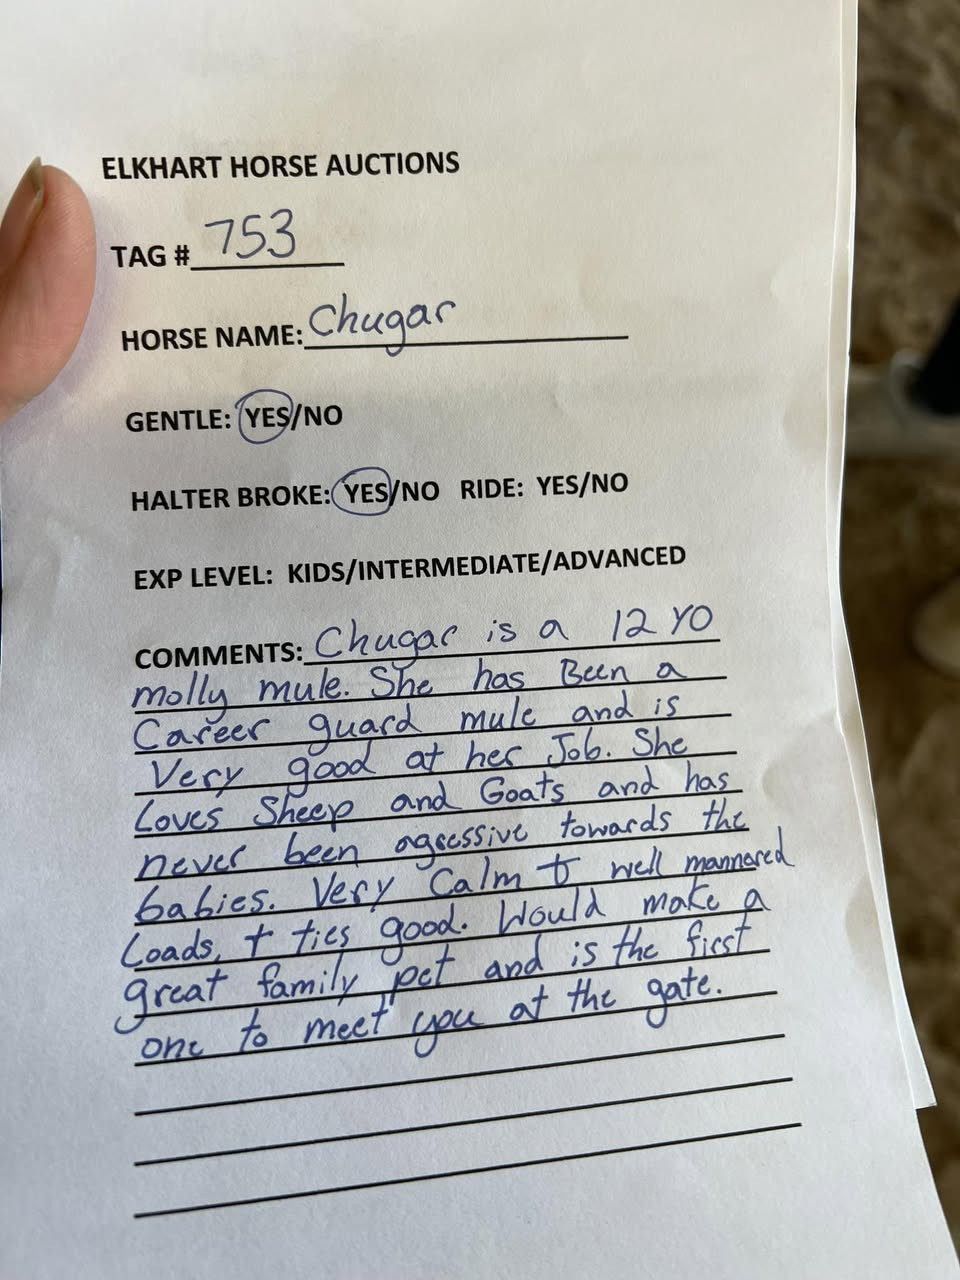 ELKHART HORSE AUCTIONS
TAG # 753
HORSE NAME: Chugar
GENTLE: YES/NO
HALTER BROKE: YES/NO RIDE: YES/NO
EXP LEVEL: KIDS/INTERMEDIATE/ADVANCED
COMMENTS: Chugar is a 12 YO
molly mule. She has Been a
Career guard mule and is
Very good at her Job. She
Loves Sheep and Goats and has
never been agressive towards the
babies. Very Calm + well mannered
Loads, + ties good. Would make a
great family pet and is the first
one to meet you at the gate.